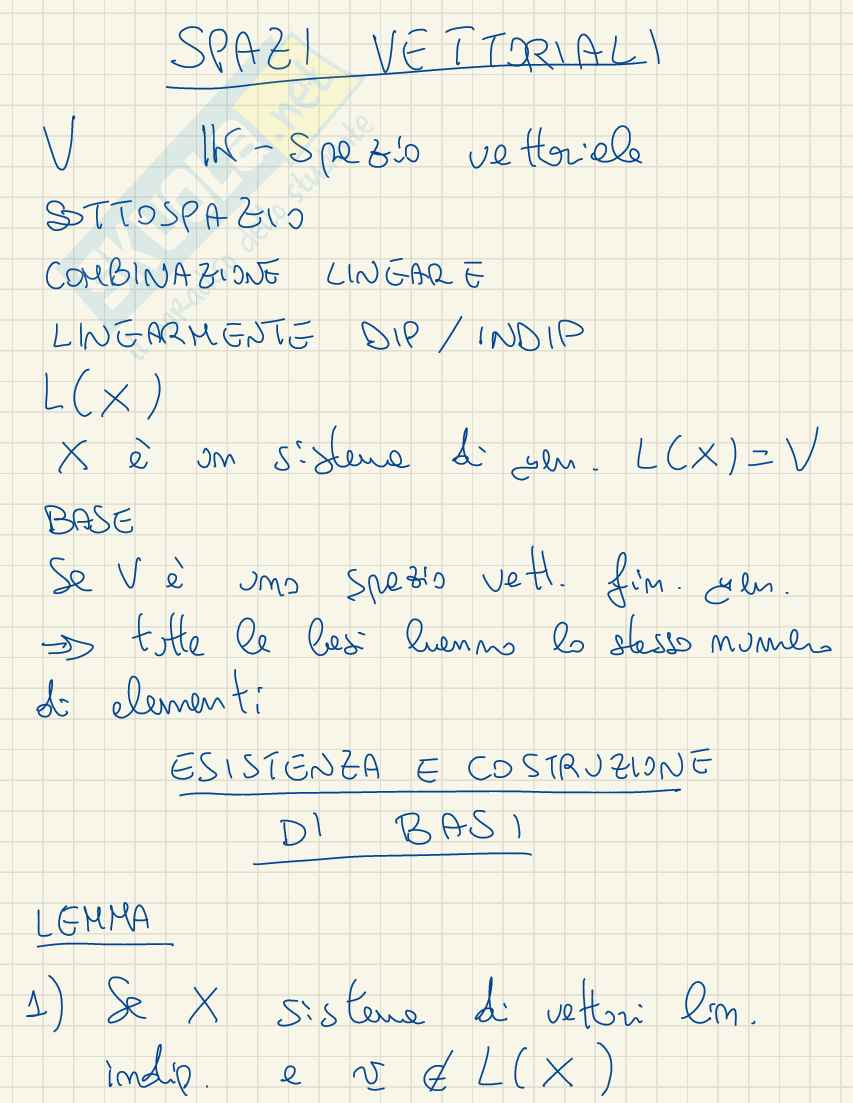 SPAZI VETTORIALI
V IK-Spazio vettoriale
SOTTOSPAZIO
COMBINAZIONE LINEARE
LINEARMENTE DIP / INDIP
L(X)
X è un sistema di gen. L(X)=V
BASE
Se V è uno spazio vett. fin. gen.
=> tutte le basi hanno lo stesso numero
di elementi
ESISTENZA E COSTRUZIONE
DI BASI
LEMMA
1) Se X sistema di vettori lin.
indip. e v ∉ L(X)
SKUOLA.net
il paradiso dello studente